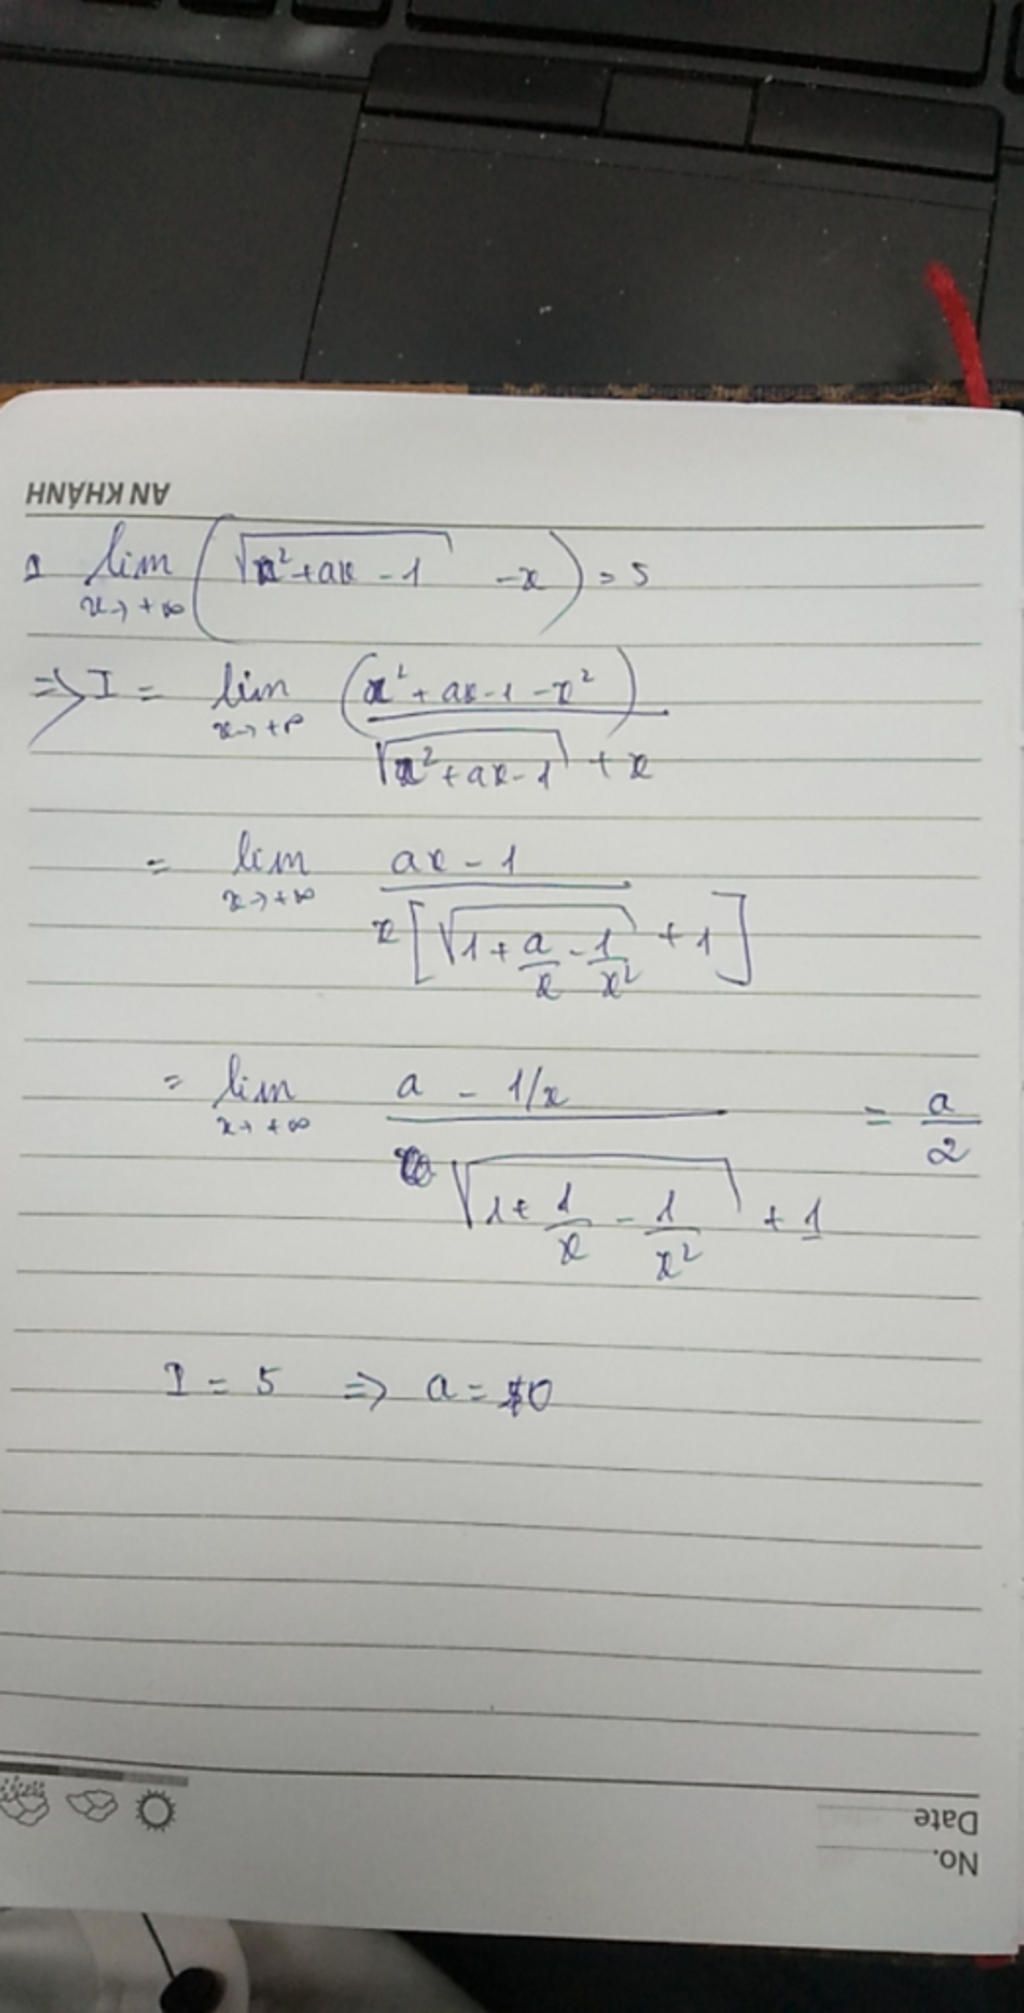 AN KHÁNH
I lim x→+∞ (√(x²+ax-1) -x) = 5
=> I = lim x→+∞ (x²+ax-1-x²) / (√(x²+ax-1) + x)
= lim x→+∞ (ax-1) / (x[√(1+a/x-1/x²) +1])
= lim x→+∞ (a - 1/x) / (√(1+1/x-1/x²) +1) = a/2
I = 5 => a = 10
Date
No.